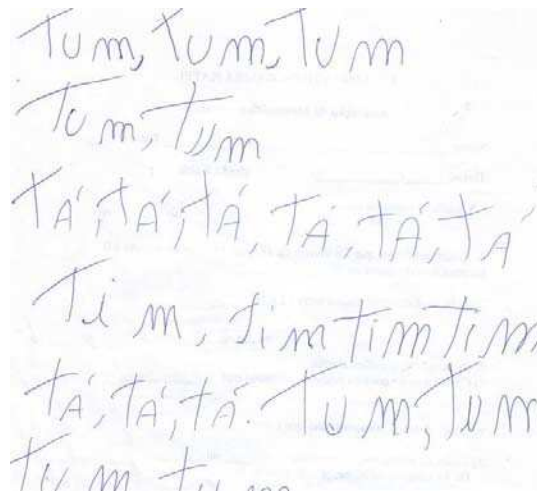 Tum, Tum, Tum
Tum, Tum
TÁ, TÁ, TÁ, TÁ, TÁ, TÁ
Tim, tim tim tim
TÁ, TÁ, TÁ. Tum, Tum
Tum tum